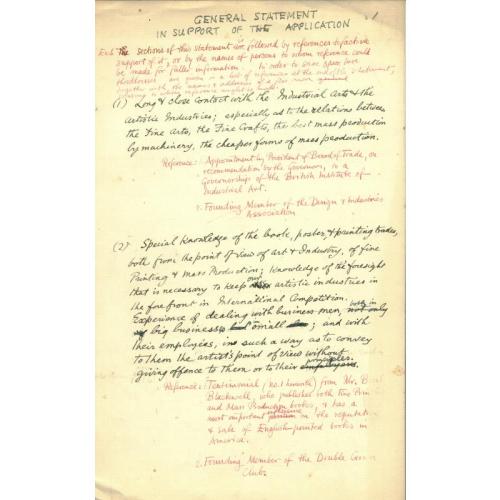 GENERAL STATEMENT
IN SUPPORT OF THE APPLICATION
The sections of this statement is followed by references to facts in
support of it, or by the names of persons to whom reference could
be made for fuller information. In order to save space here
(1) Long & close contact with the Industrial Arts & the
Artistic Industries; especially as to the relations between
the Fine Arts, the Fine Crafts, the best mass production
by machinery, the cheaper forms of mass production.
Reference: Appointment by President of Board of Trade, on
recommendation by the Governors, to a
Governorship of the British Institute of
Industrial Art.
2. Founding Member of the Design & Industries
Association
(2) Special Knowledge of the book, poster, & printing trades,
both from the point of view of art & Industry, of fine
Printing & Mass Production; knowledge of the foresight
that is necessary to keep our artistic industries in
the forefront in International Competition.
Experience of dealing with business men, both in not only
big business & small; and with
their employees, in such a way as to convey
to them the artist's point of view without
giving offence to them or to their principles.
Reference: Testimonial (no. 1 herewith) from Mr. Basil
Blackwell, who published both Fine Print
and Mass Production books, & has a
most important influence on the reputation
& sale of English-printed books in
America.
2. Founding Member of the Double Crown
Club